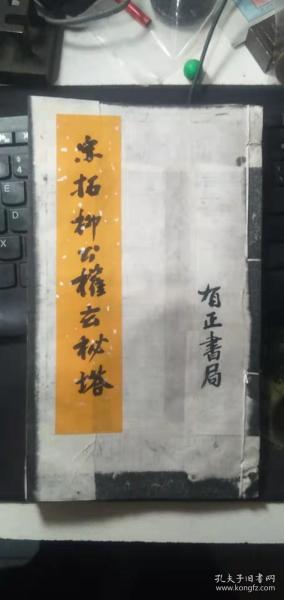 宋拓柳公權玄秘塔
有正書局
孔夫子旧书网
www.kongfz.com